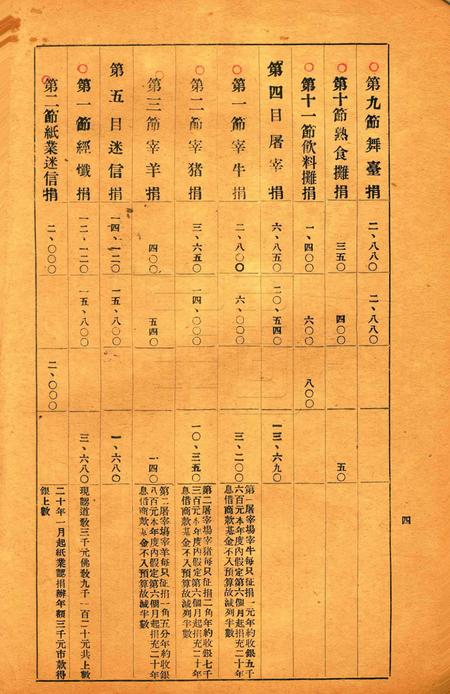 第九節舞臺捐 二、八八〇 二、八八〇
第十節熟食攤捐 三五〇 四〇〇 五〇
第十一節飲料攤捐 一、四〇〇 六〇〇 八〇〇
第四目屠宰捐 六、八五〇 二〇、五四〇 一三、六九〇
第一節宰牛捐 二、八〇〇 六、〇〇〇 三、二〇〇 第一屠宰場宰牛每只征捐一元年約收銀五千
六百元本年度內假定第六個月起捐充二十年
息借商款基金不入預算故減列半數
第二節宰猪捐 三、六五〇 一四、〇〇〇 一〇、三五〇 第二屠宰場宰猪每只征捐二角年約收銀七千
三百元本年度內假定第六個月起捐充二十年
息借商款基金不入預算故減半數
第三節宰羊捐 四〇〇 五四〇 一四〇 第二屠宰場宰羊每只征捐一角五分年約收銀
八百元本年度內假定第六個月起捐充二十年
息借商款基金不入預算故減半數
第五目迷信捐 一四、一二〇 一五、八〇〇 一、六八〇
第一節經懺捐 一二、一二〇 一五、八〇〇 三、六八〇 現認道敎三千元佛敎九千一百二十元共上數
第二節紙業迷信捐 二、〇〇〇 二、〇〇〇 二十年一月起紙業認捐辦年額三千元市款得
銀上數
四